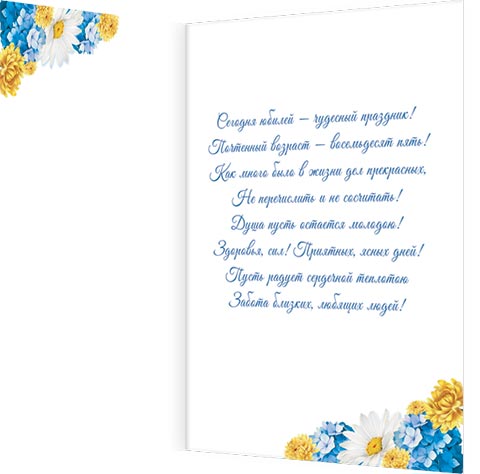 Сегодня юбилей — чудесный праздник!
Почтенный возраст — восемьдесят пять!
Как много было в жизни дел прекрасных,
Не перечислить и не сосчитать!
Душа пусть остается молодою!
Здоровья, сил! Приятных, ясных дней!
Пусть радует сердечной теплотою
Забота близких, любящих людей!